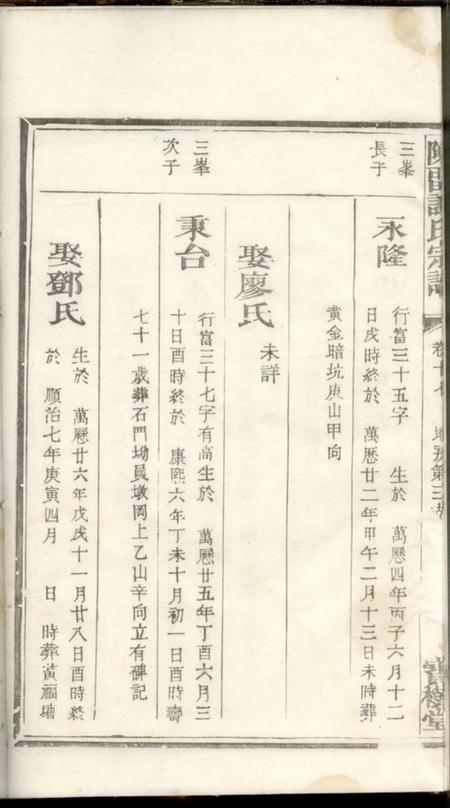 氏宗譜
卷十七
三峯
長子
永隆
行富三十五字 生於 萬曆四年丙子六月十二
日戌時終於 萬曆廿二年甲午二月十三日未時葬
黄金暗坑庚山甲向
娶廖氏
未詳
三峯
次子
秉台
行富三十七字有高生於 萬曆廿五年丁酉六月三
十日酉時終於 康熙六年丁未十月初一日酉時壽
七十一歲葬石門坳員墩岡上乙山辛向立有碑記
娶鄧氏
生於 萬曆廿六年戊戌十一月廿八日酉時終
於 順治七年庚寅四月 日 時葬黃福塘
寶樹堂